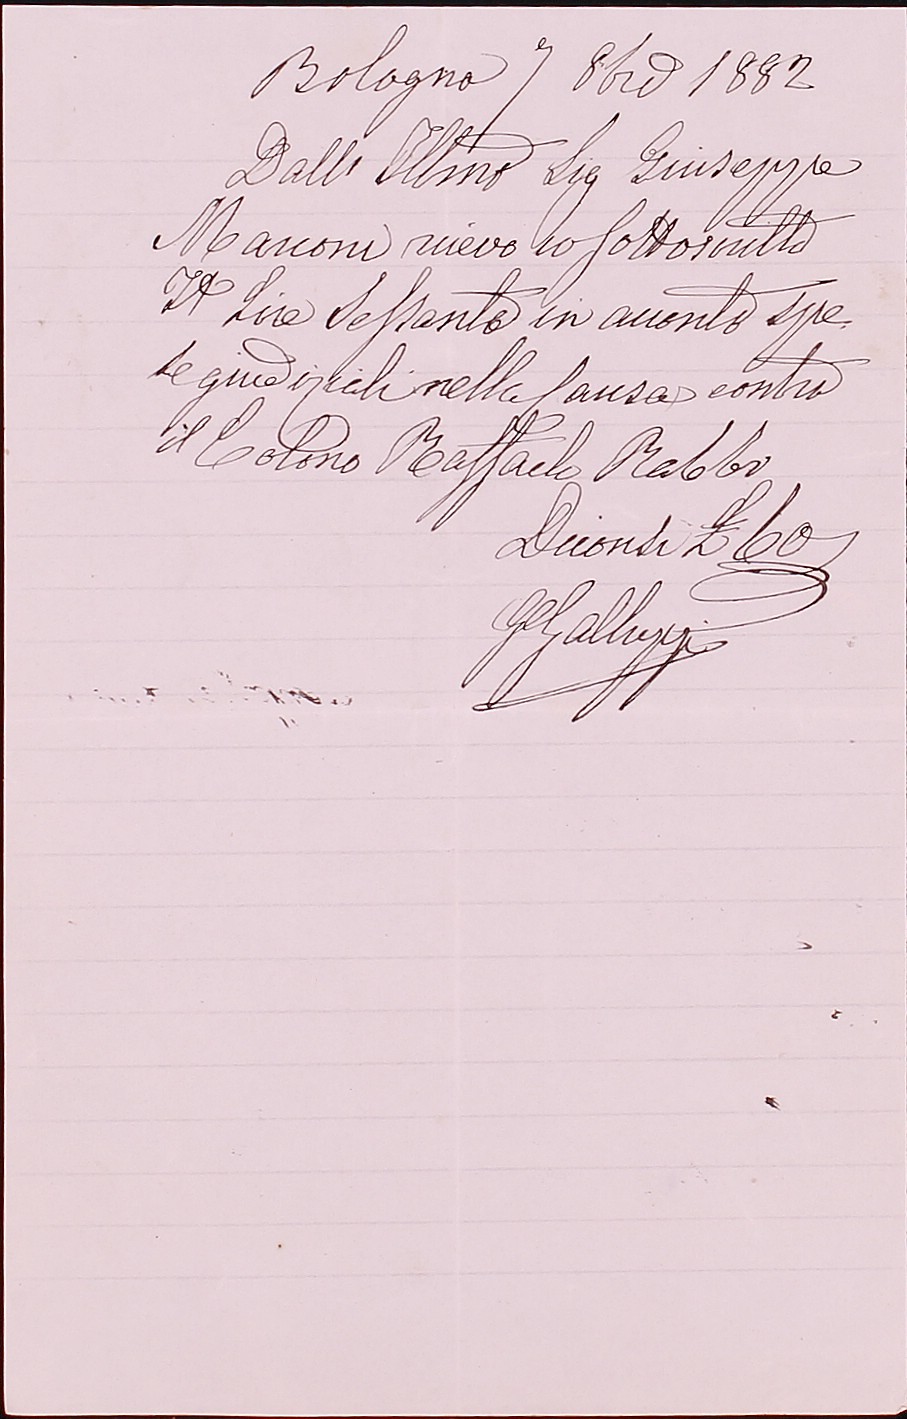 Bologna 7 8bre 1882
Dall' Illmo Sig Giuseppe
Marconi ricevo io sottoscritto
It Lire Sessanta in acconto spe-
se giudiziali nella Causa contro
il Colono Raffaele Rabbi
Diconsi £ 60
G Galluppi